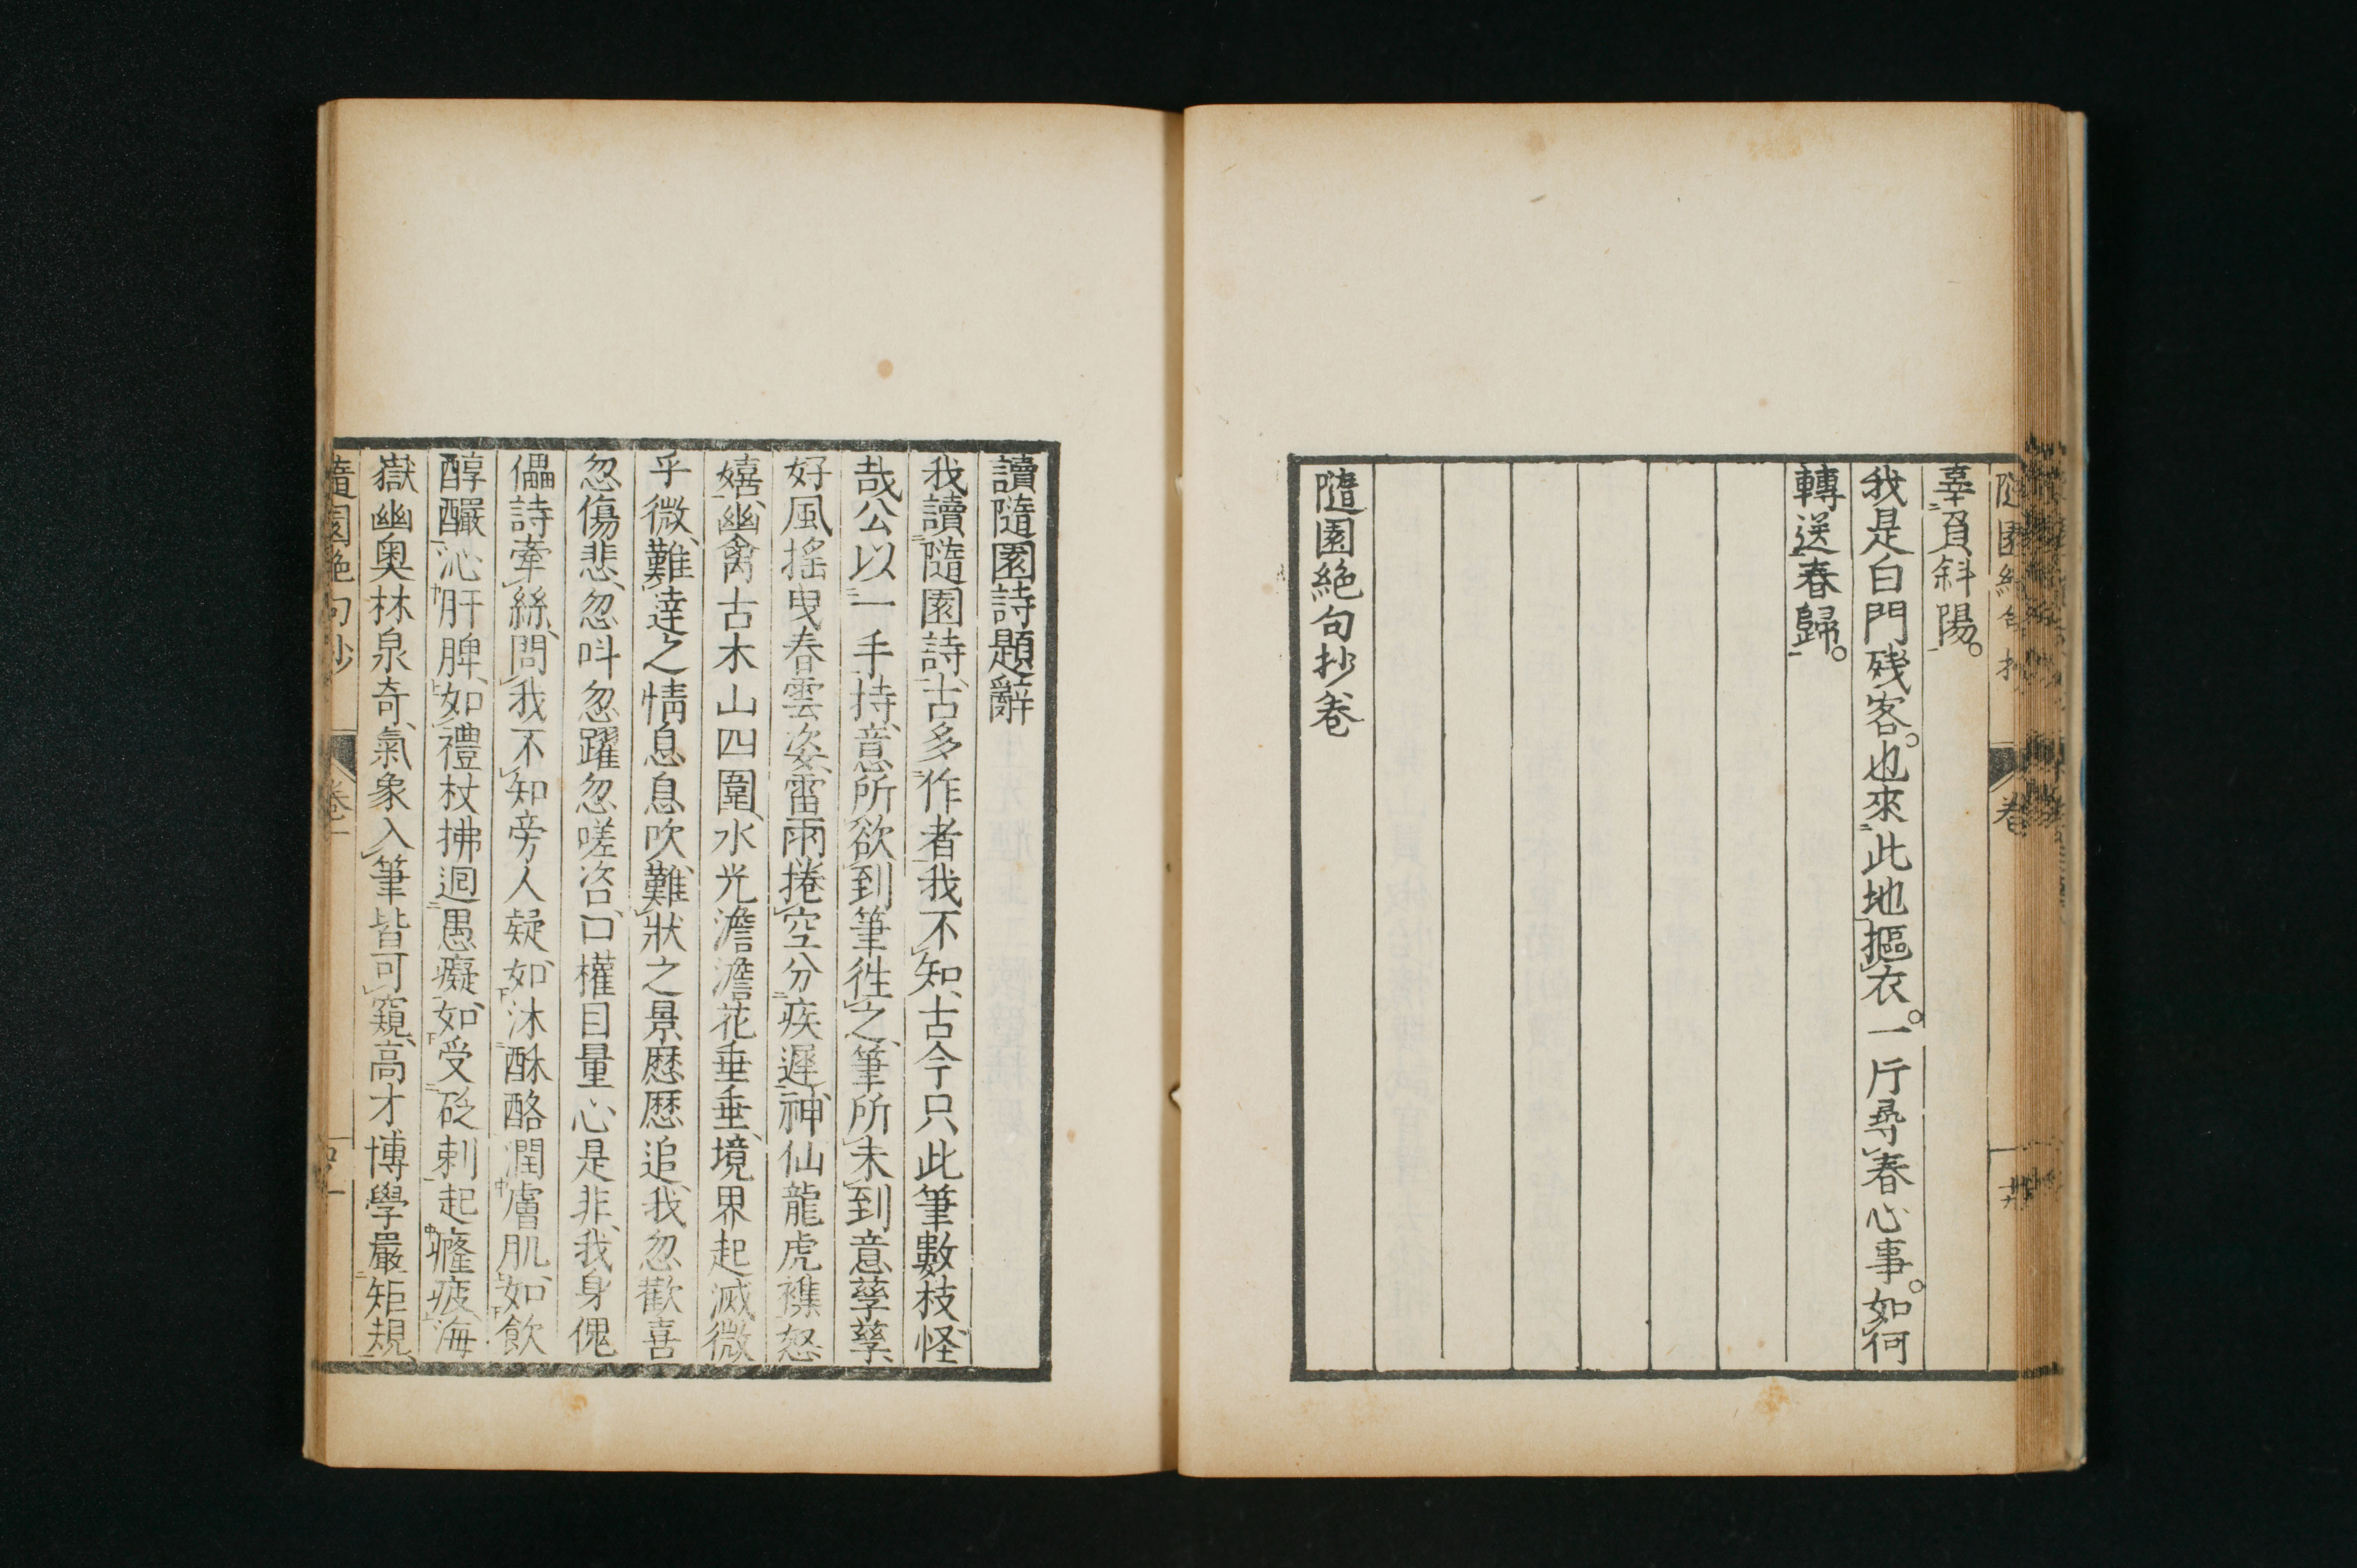 辜負斜陽。
我是白門残客。也來此地摳衣。一斤尋春心事。如何
轉送春歸。
隨園絶句抄卷
讀隨園詩題辭
我讀隨園詩古多作者我不知古今只此筆數枝怪
哉公以一手持意所欲到筆徃之筆所未到意孳孳
好風搖曳春雲姿雷雨捲空分疾遲神仙龍虎襍怒
嬉幽禽古木山四圍水光澹澹花垂垂境界起滅微
乎微難達之情息息吹難狀之景歷歷追我忽歡喜
忽傷悲忽叫忽躍忽嗟咨口權目量心是非我身傀
儡詩牽絲問我不知旁人疑如沐酥酪潤膚肌如飲
醇釅沁肝脾如禮杖拂迴愚癡如受砭刺起癃疲海
嶽幽奥林泉奇氣象入筆皆可窺高才博學嚴矩規
隨園絶句抄
卷一